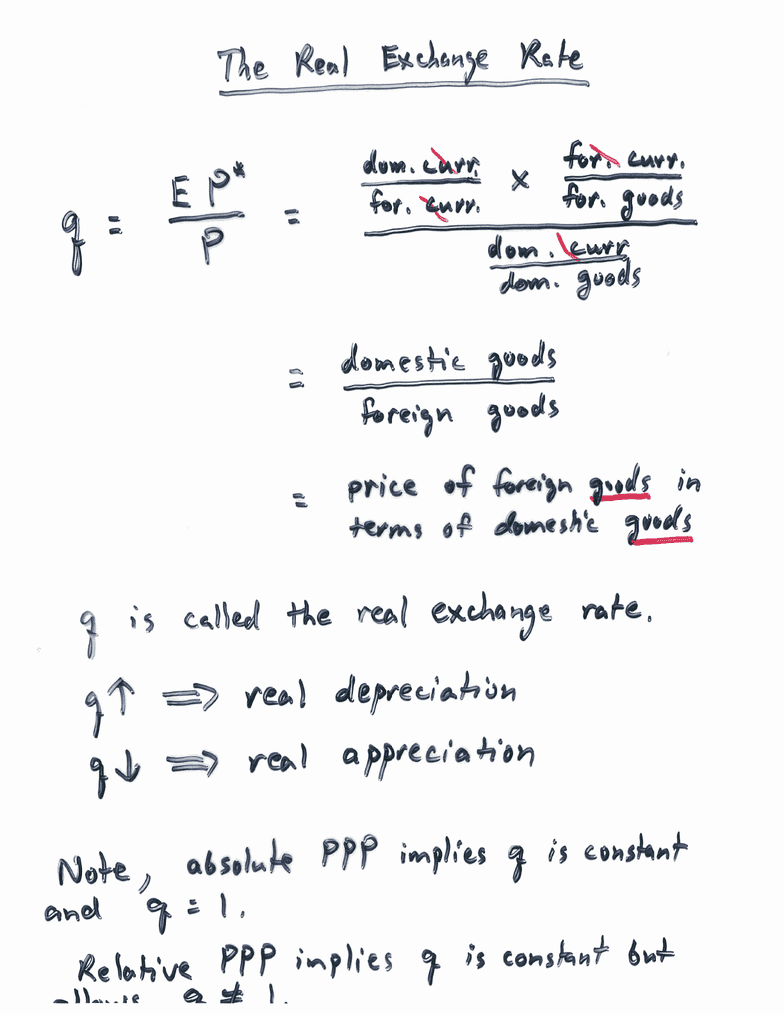 The Real Exchange Rate
q = E P* / P = (dom. curr. / for. curr. × for. curr. / for. goods) / (dom. curr / dom. goods)
= domestic goods / foreign goods
= price of foreign goods in
terms of domestic goods
q is called the real exchange rate.
q ↑ ⟹ real depreciation
q ↓ ⟹ real appreciation
Note, absolute PPP implies q is constant
and q = 1.
Relative PPP implies q is constant but
allows q ≠ 1.